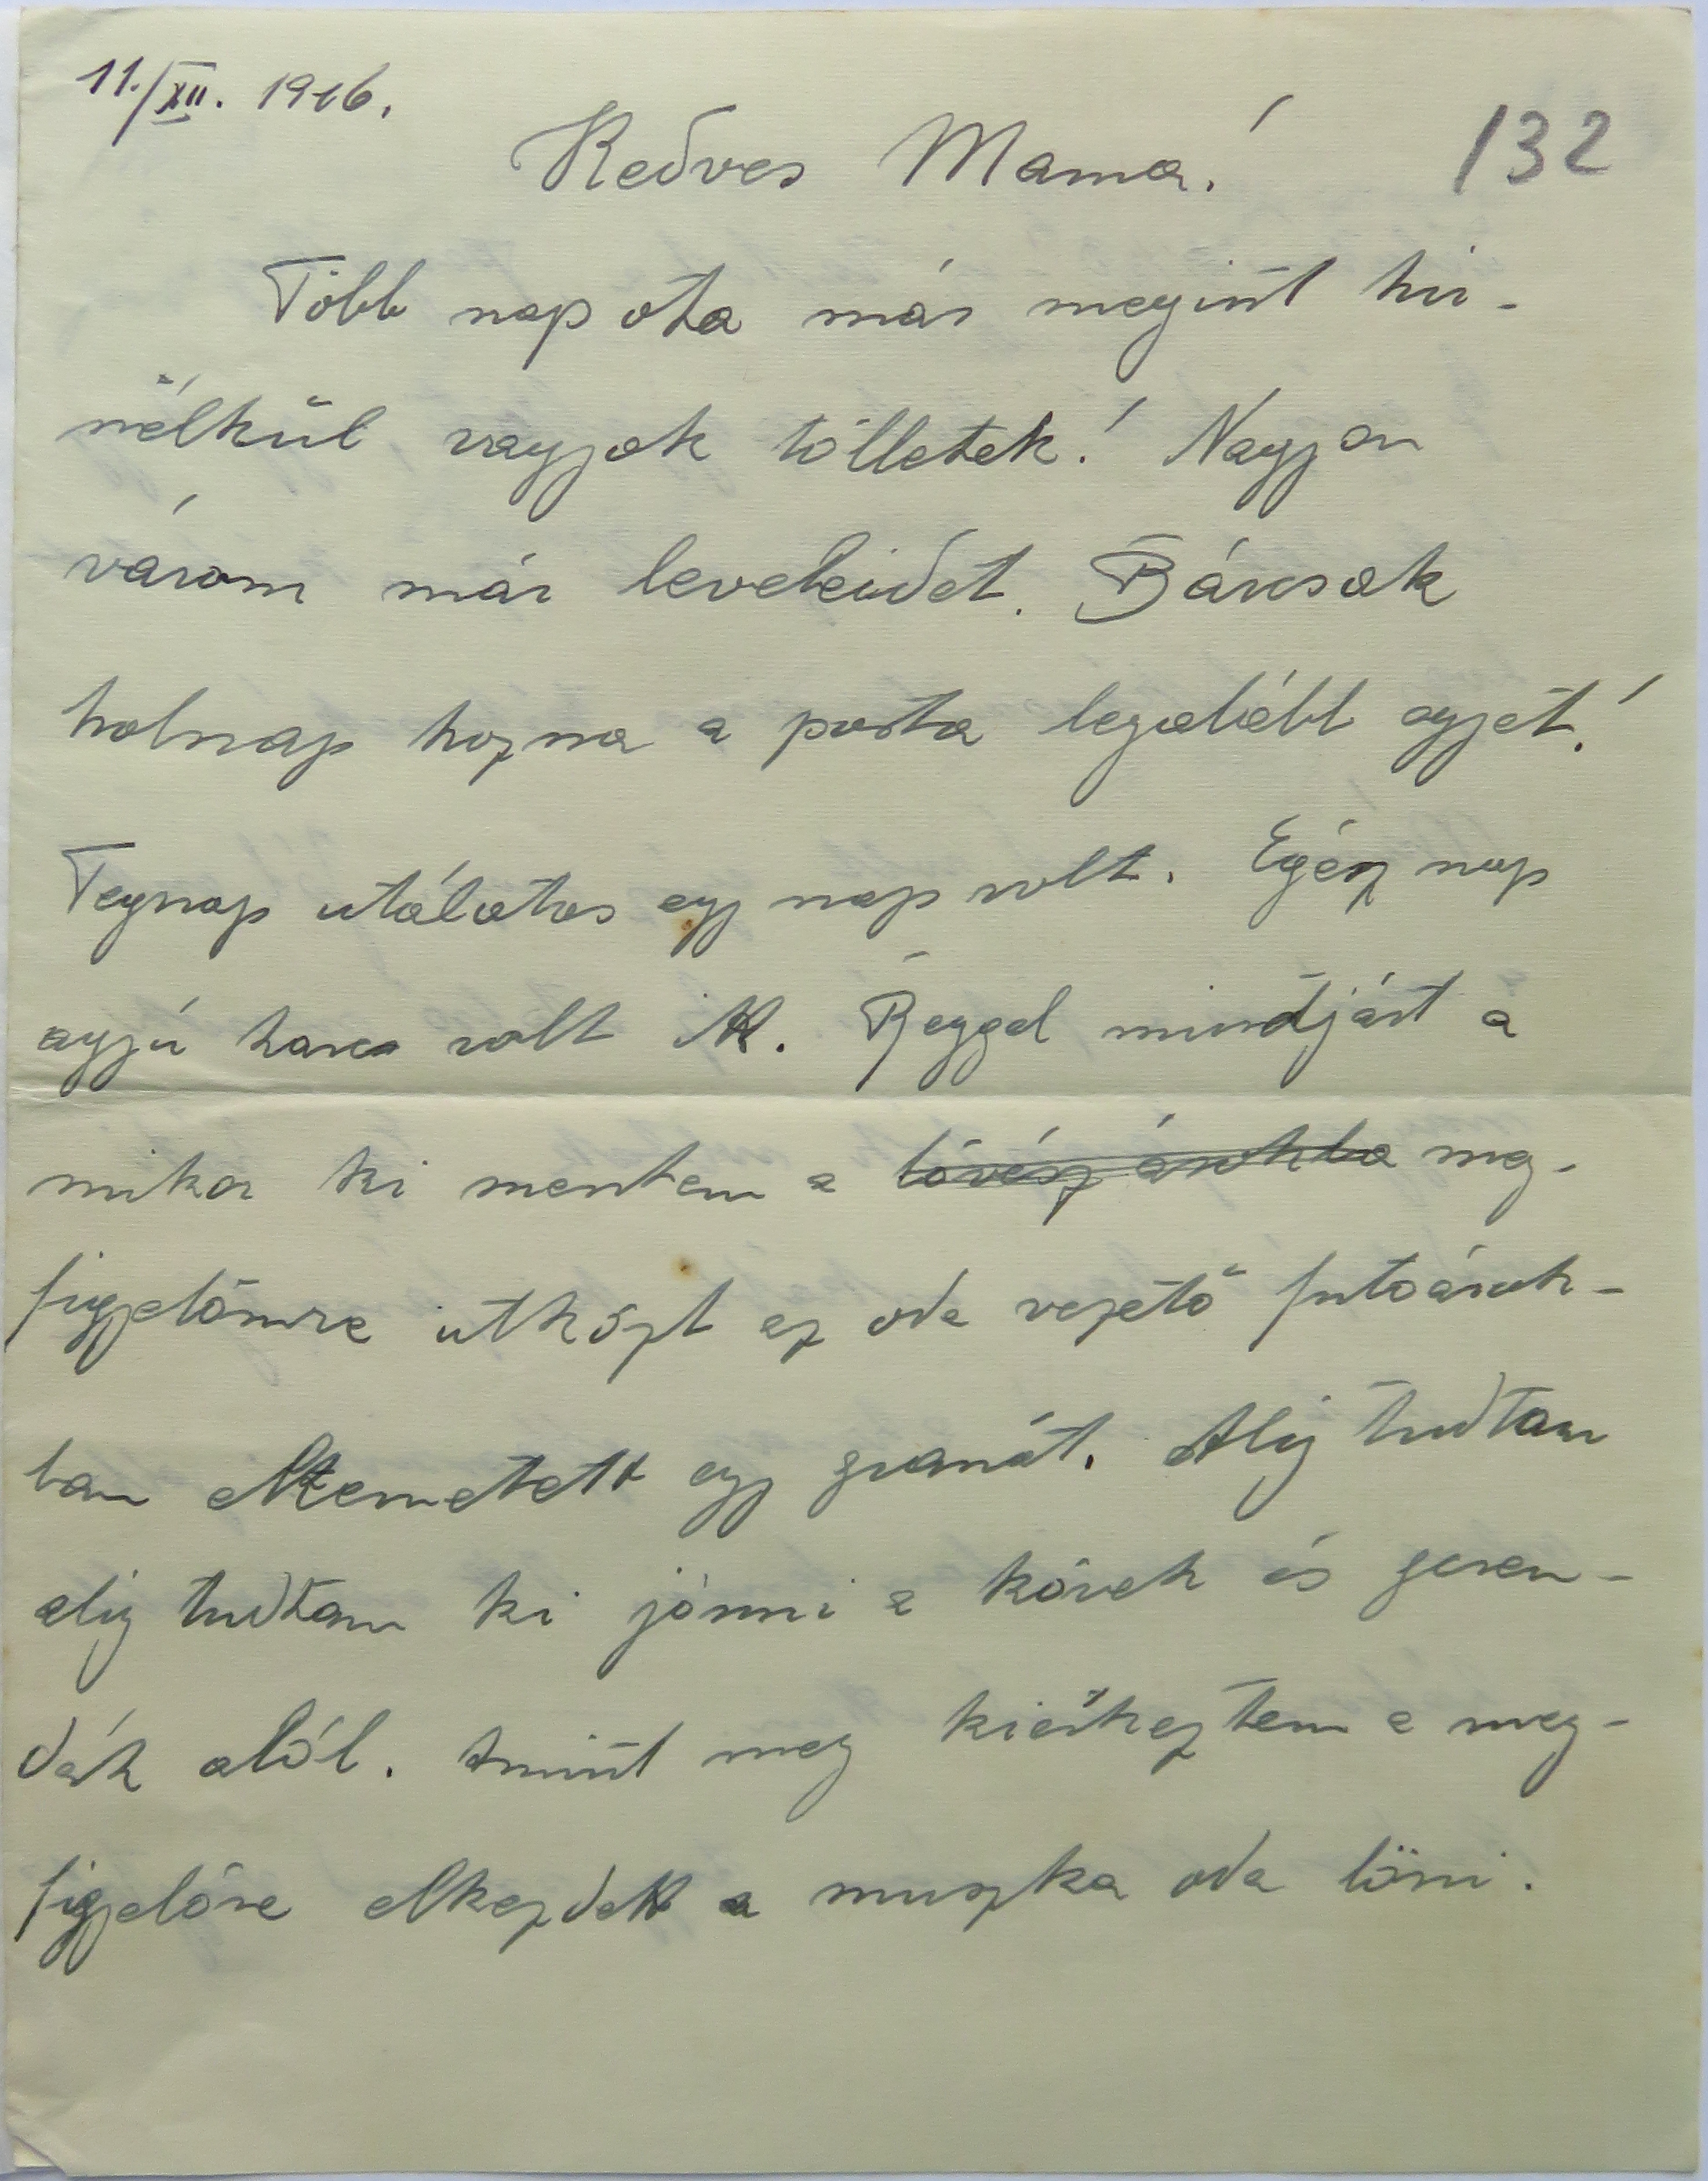 11./XII. 1916.
Kedves Mama!
132
Több nap ota már megint hir-
nélkül vagyok tölletek! Nagyon
várom már leveleidet. Bárcsak
holnap hozna a posta legalább egyet!
Tegnap utálatos egy nap volt. Egész nap
agyú harcz volt itt. Reggel mindjárt a
mikor ki mentem a lövész árokba meg-
figyelőmre útközt az oda vezető futóárok-
ban eltemetett egy gránát. Alig tudtam
alig tudtam ki jönni a kövek és geren-
dák alól. Amint meg kiérkeztem a meg-
figyelőre elkezdett a muszka oda lőni.